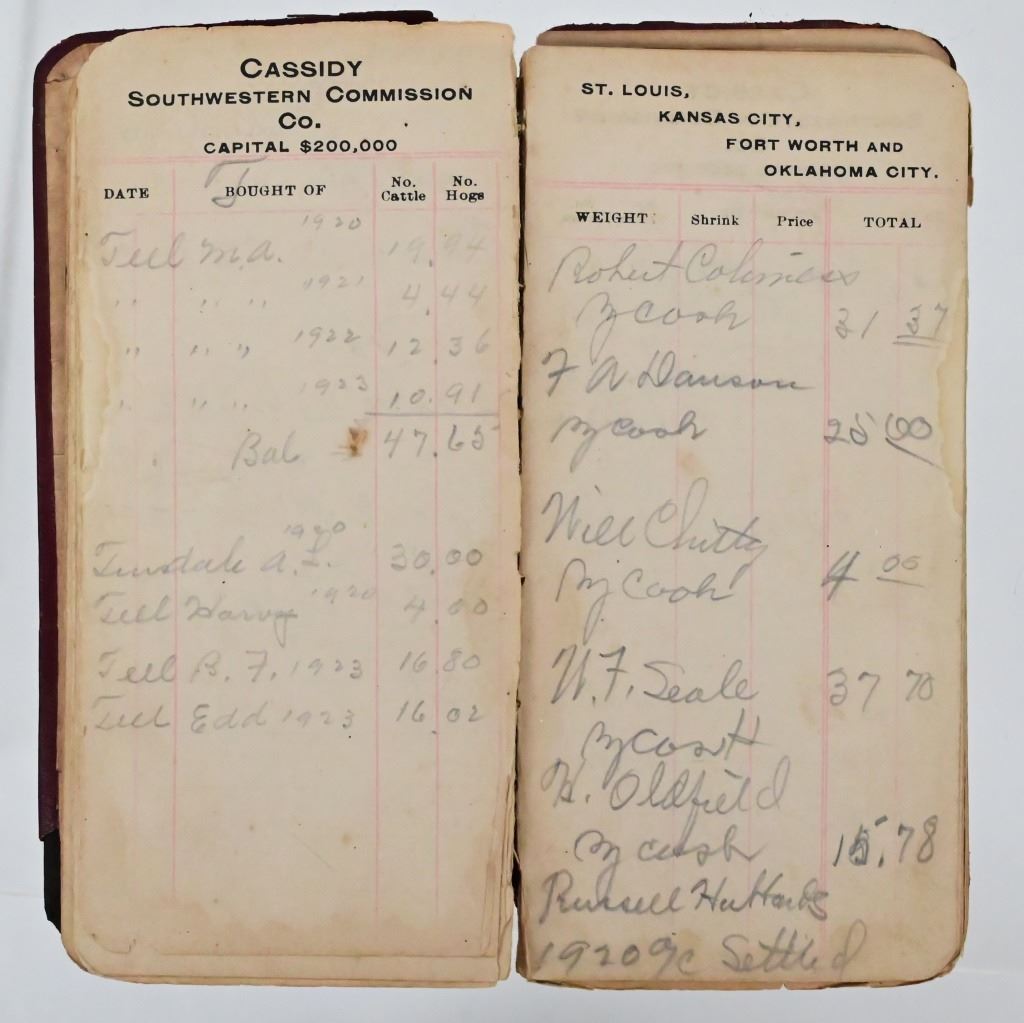 CASSIDY
SOUTHWESTERN COMMISSION
CO.
CAPITAL $200,000
T
DATE BOUGHT OF No. Cattle No. Hogs
1920
Teel M.A. 19.94
" " " 1921 4.44
" " " 1922 12.36
" " " 1923 10.91
Bal 47.65
1920
Tinsdale A. L. 30.00
Teel Harvy 1920 4.00
Teel B. F. 1923 16.80
Teel Edd 1923 16.02
ST. LOUIS,
KANSAS CITY,
FORT WORTH AND
OKLAHOMA CITY.
WEIGHT Shrink Price TOTAL
Robert
By Cash 31 37
F A Dawson
By cash 25 00
Will Chitty
By Cash 4 00
W. F. Seale 37 70
By cash
H. Oldfield
By cash 15.78
Russell
1920 a/c Settled